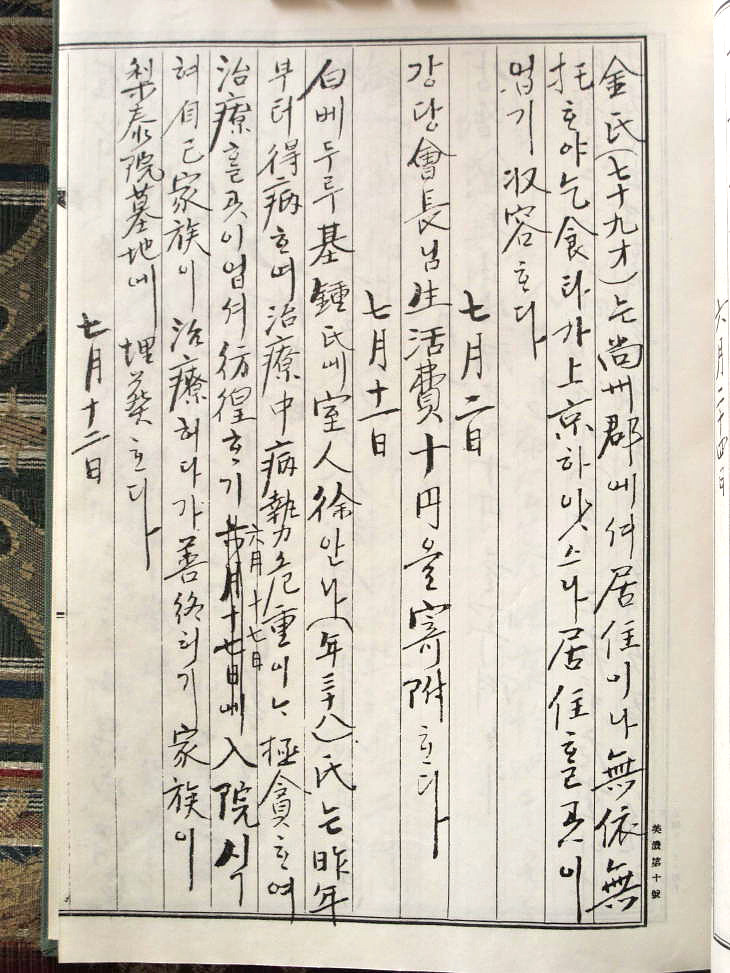 金氏(七十九才)는尚州郡에셔居住이나無依無
托호야乞食타가上京하얏스나居住홀곳이
업기收容호다
七月二日
강당會長님生活費十円을寄附호다
七月十一日
白베두루基鍾氏에室人徐안나(年三十八)氏는昨年
부터得病호며治療中病勢危重이는極貧호여
治療홀곳이업셔彷徨호기六月十七日에入院식
혀自己家族이治療허다가善終허기家族이
梨泰院墓地에埋葬호다
七月十二日
美濃第十號
六月二十四日